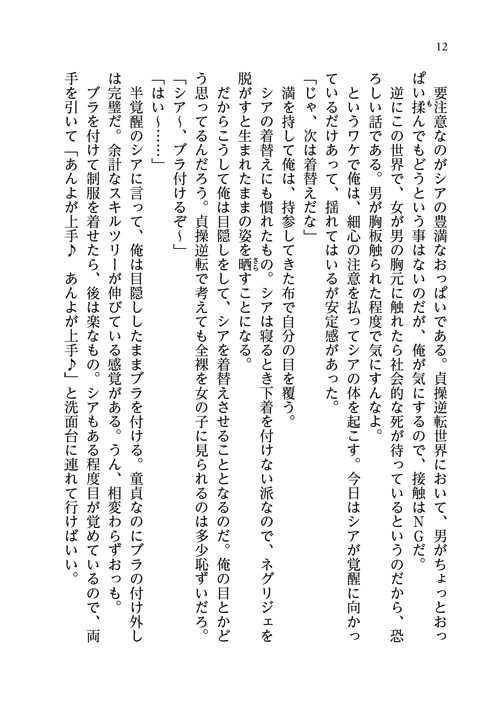 12
　要注意なのがシアの豊満なおっぱいである。貞操逆転世界において、男がちょっとおっ
ぱい揉んでもどうという事はないのだが、俺が気にするので、接触はＮＧだ。
　逆にこの世界で、女が男の胸元に触れたら社会的な死が待っているというのだから、恐
ろしい話である。男が胸板触られた程度で気にすんなよ。
　というワケで俺は、細心の注意を払ってシアの体を起こす。今日はシアが覚醒に向かっ
ているだけあって、揺れてはいるが安定感があった。
「じゃ、次は着替えだな」
　満を持して俺は、持参してきた布で自分の目を覆う。
　シアの着替えにも慣れたもの。シアは寝るとき下着を付けない派なので、ネグリジェを
脱がすと生まれたままの姿を晒すことになる。
　だからこうして俺は目隠しをして、シアを着替えさせることとなるのだ。俺の目とかど
う思ってるんだろう。貞操逆転で考えても全裸を女の子に見られるのは多少恥ずいだろ。
「シア～、ブラ付けるぞ～」
「はい～……」
　半覚醒のシアに言って、俺は目隠ししたままブラを付ける。童貞なのにブラの付け外し
は完璧だ。余計なスキルツリーが伸びている感覚がある。うん、相変わらずおっも。
　ブラを付けて制服を着せたら、後は楽なもの。シアもある程度目が覚めているので、両
手を引いて「あんよが上手♪　あんよが上手♪」と洗面台に連れて行けばいい。